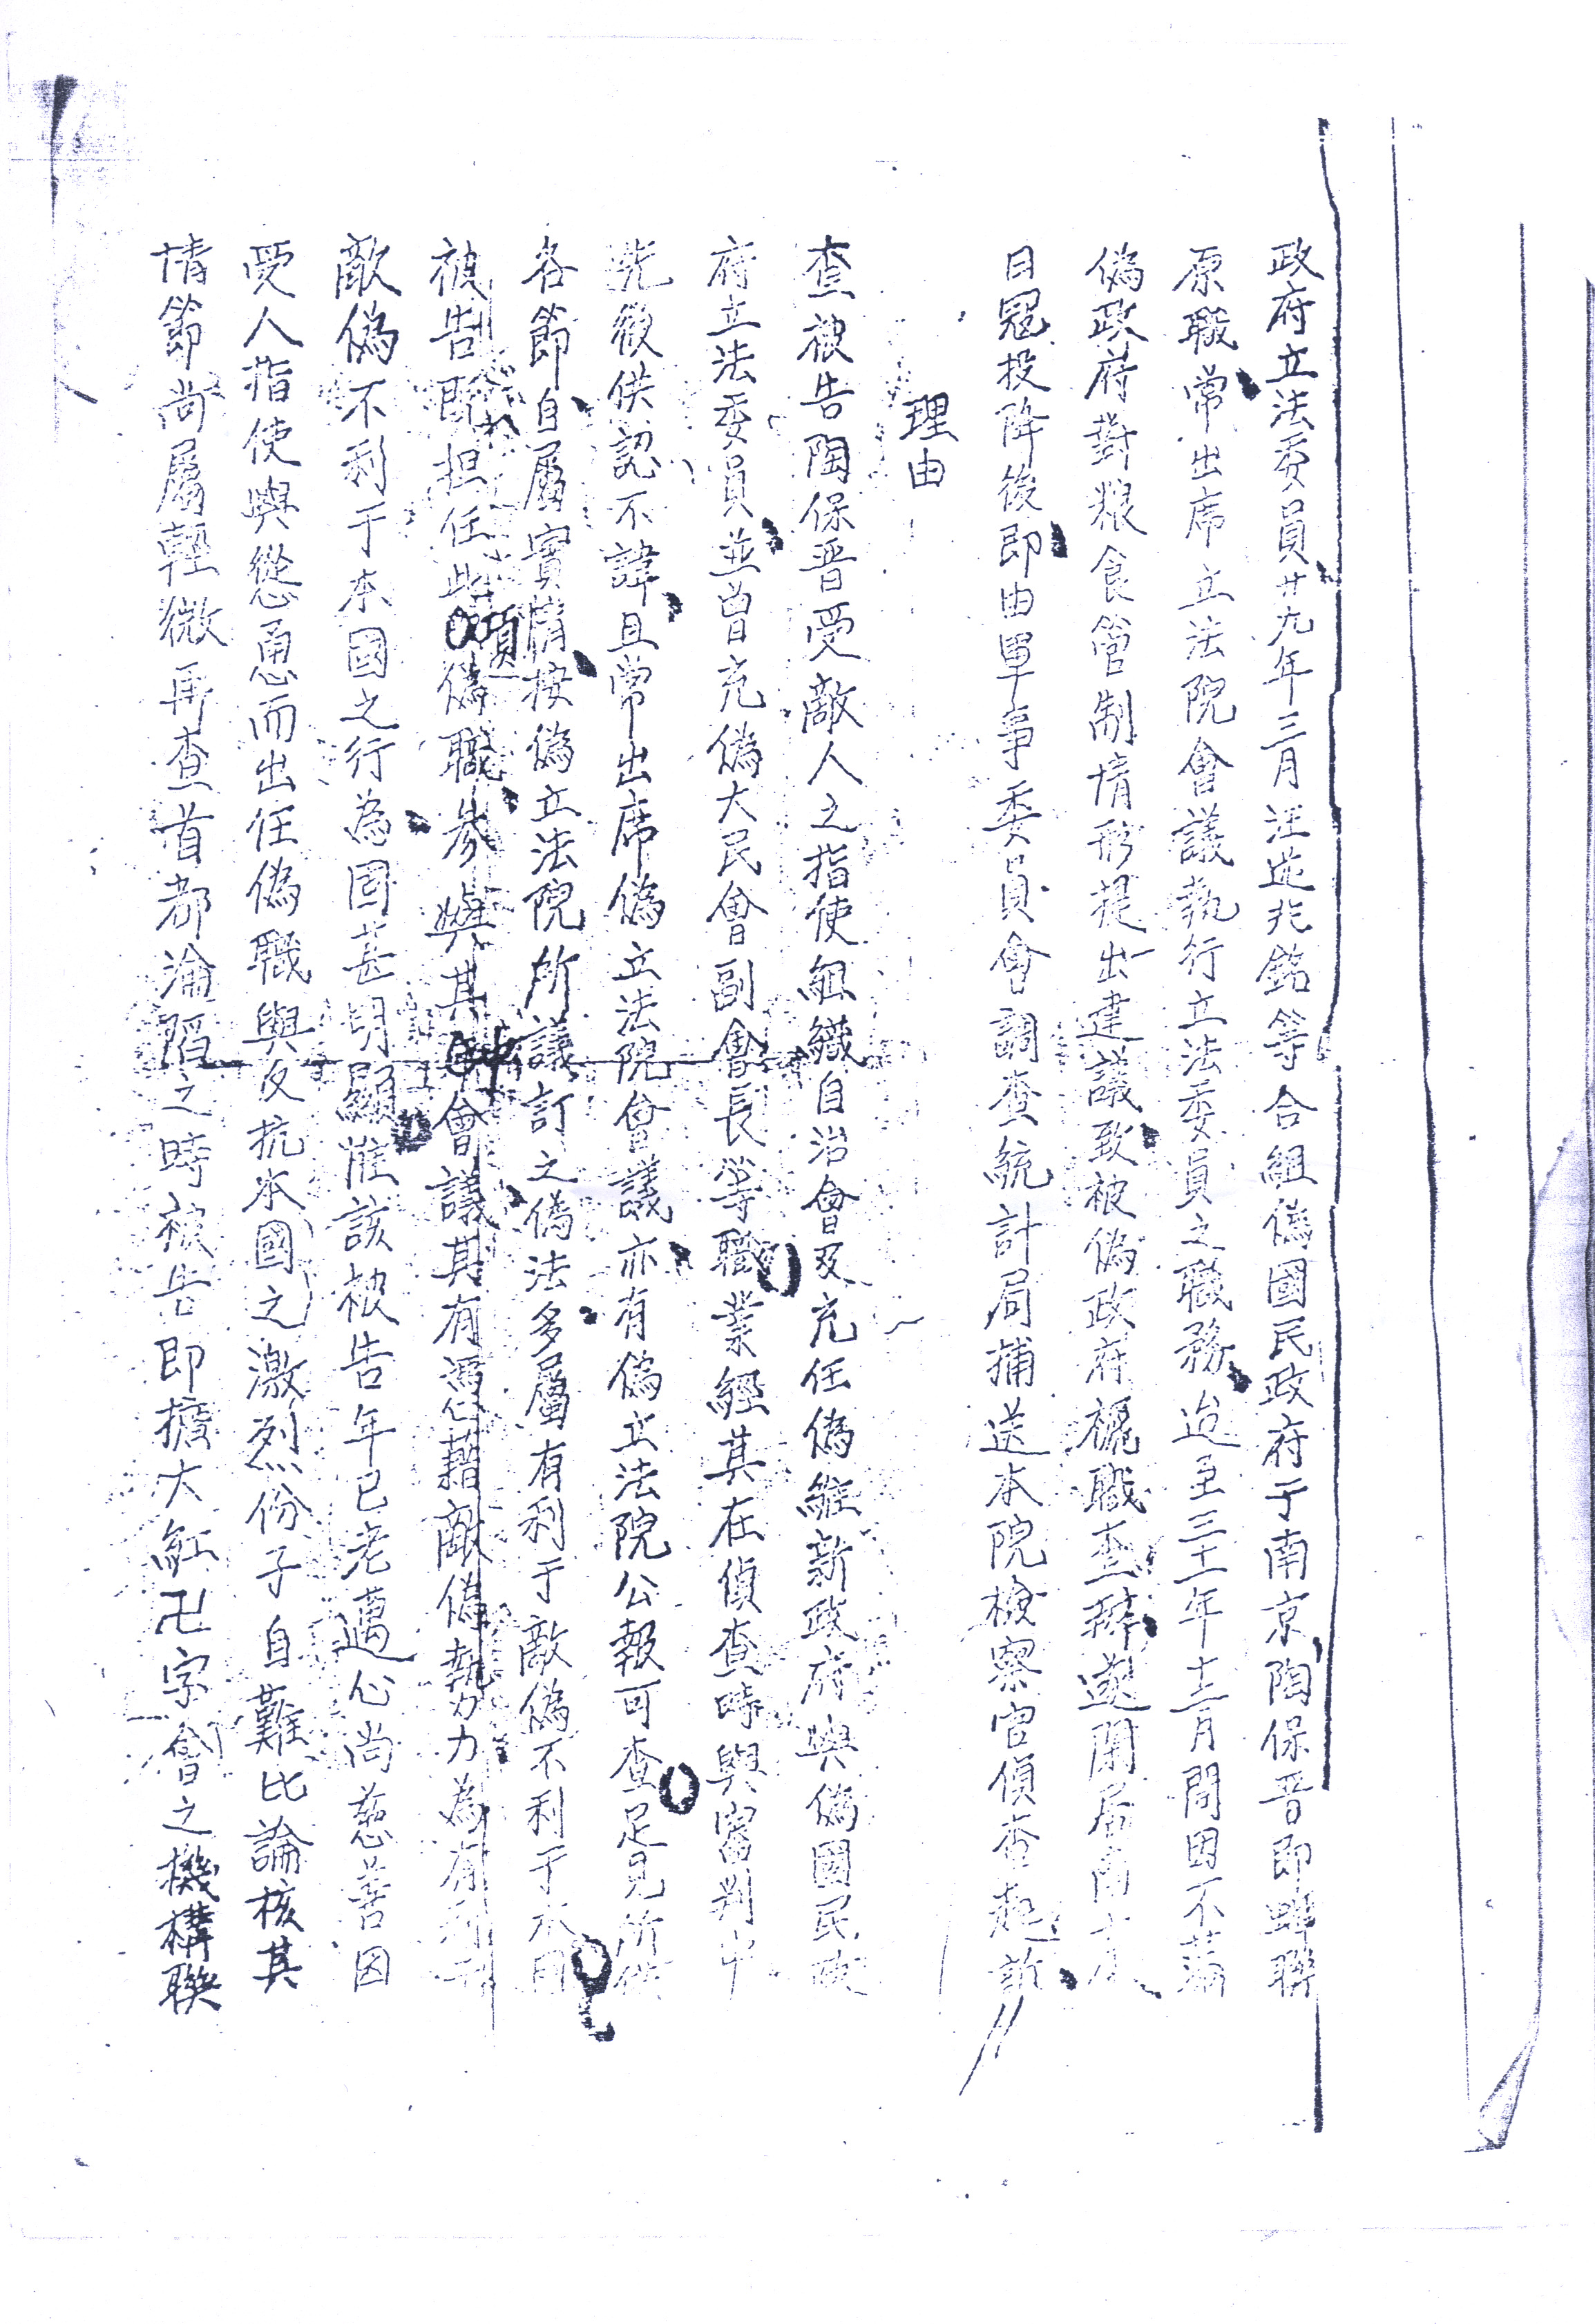 政府立法委員廿九年三月汪逆兆銘等合組偽國民政府于南京陶保晋即蟬聯
原職常出席立法院會議執行立法委員之職務迨至三十一年十二月間因不滿
偽政府對粮食管制情形提出建議致被偽政府褫職查辦遂閒居南京
日寇投降後即由軍事委員會調查統計局捕送本院檢察官偵查起訴
理由
查被告陶保晋受敵人之指使組織自治會及充任偽維新政府與偽國民政
府立法委員並曾充偽大民會副會長等職業經其在偵查時與審判中
先後供認不諱且常出席偽立法院會議亦有偽立法院公報可查足見所供
各節自屬實情按偽立法院所議訂之偽法多屬有利于敵偽不利于本國
被告既担任此項偽職參與其會議其有憑藉敵偽勢力為有利于
敵偽不利于本國之行為固甚明顯惟該被告年已老邁心尚慈善因
受人指使與慫恿而出任偽職與反抗本國之激烈份子自難比論核其
情節尚屬輕微再查首都淪陷之時被告即擴大紅卍字會之機構聯